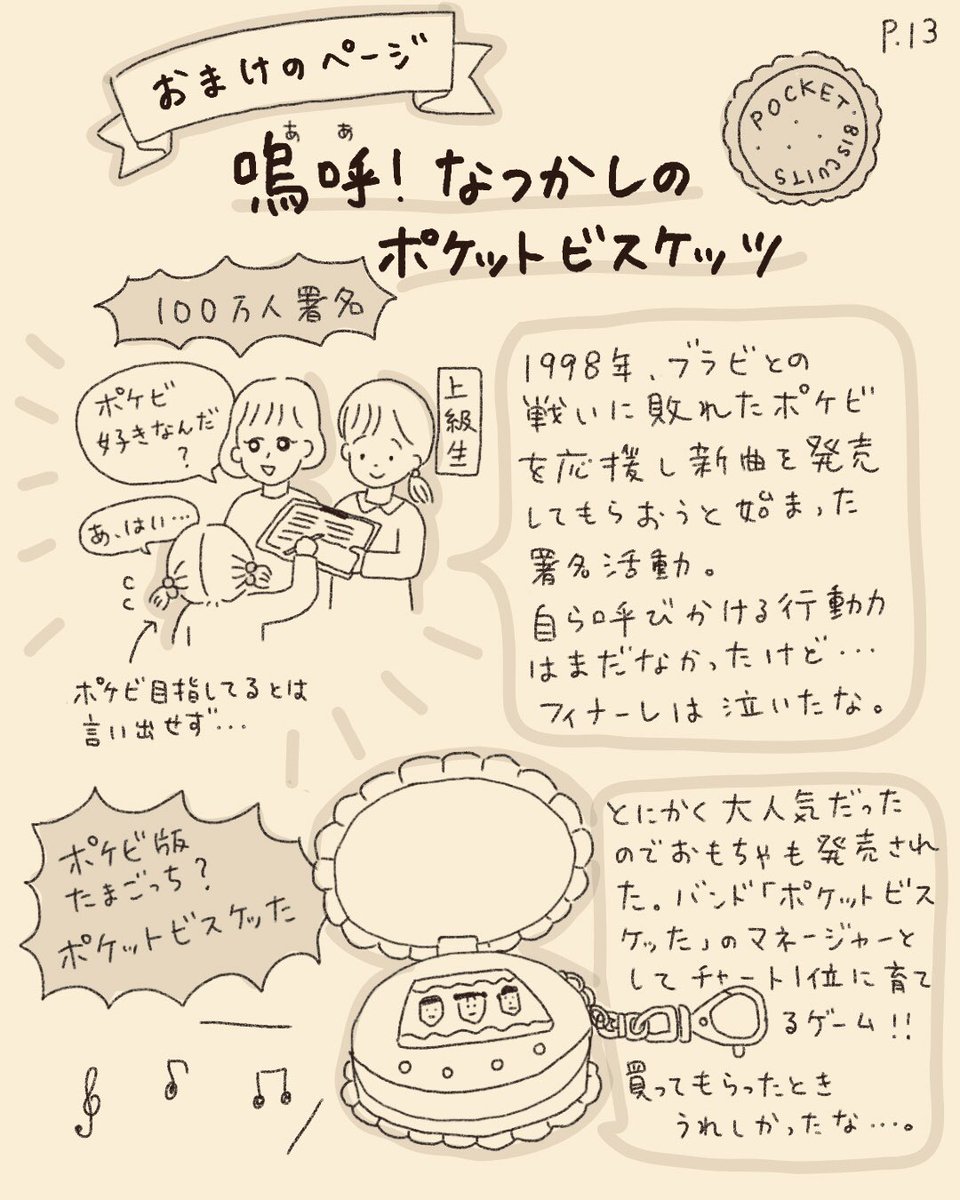 P.13
おまけのページ
POCKET・BISCUITS
ああ
嗚呼!なつかしの
ポケットビスケッツ
100万人署名
ポケビ
好きなんだ
?
上級生
あ、はい…
ポケビ目指してるとは
言い出せず…
1998年、ブラビとの
戦いに敗れたポケビ
を応援し新曲を発売
してもらおうと始まった
署名活動。
自ら呼びかける行動力
はまだなかったけど…
フィナーレは泣いたな。
ポケビ版
たまごっち?
ポケットビスケッた
とにかく大人気だった
のでおもちゃも発売され
た。バンド「ポケットビス
ケッた」のマネージャーと
してチャート1位に育て
るゲーム!!
買ってもらったとき
うれしかったな…。